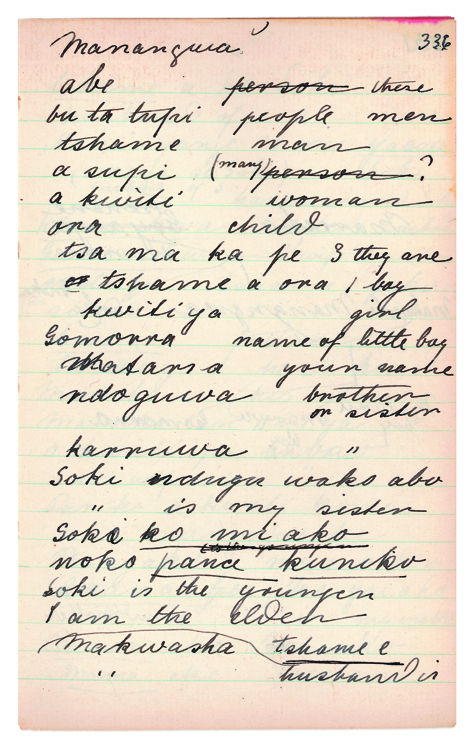 Manangwa 336
abe person there
bu ta tupi people men
tshame man
a supi (many) person ?
a kwiti woman
ora child
tsa ma ka pe 3 they are
or tshame a ora 1 boy
kwiti ya girl
Gomorra name of little boy
Matarsa your name
ndoguwa brother
or sister
karruwa "
Soki ndugu wako abo
" is my sister
Soki ko mi ako
noko pana kuniko
Soki is the younger
I am the elder
Makwasha tshame e
" husband is